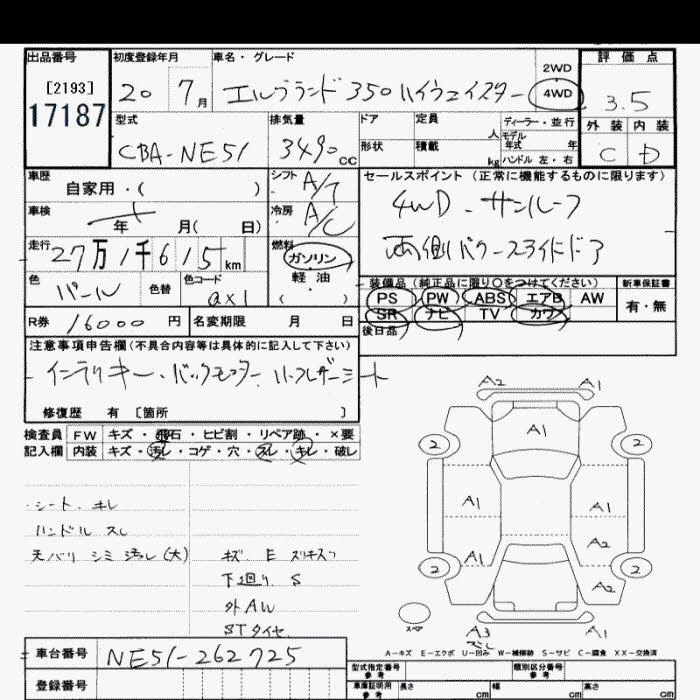 出品番号 初度登録年月 車名・グレード 評価点
[2193] 20 7月 エルグランド350ハイウェイスター 2WD 4WD 3.5
17187
型式 排気量 ドア 定員 人 ディーラー・並行 外装 内装
CBA-NE51 3490cc 形状 積載 kg モデル年式 年 ハンドル 左・右 C D
車歴 自家用・( ) シフト A/T セールスポイント (正常に機能するものに限ります)
車検 年 月( 日) 冷房 A/C 4WD・サンルーフ
走行 27万1千615km 燃料 ガソリン 両側パワースライドドア
軽油
色 パール 色替 色コード qx1 ( ) 装備品 (純正品に限り○をつけてください) 新車保証書
PS PW ABS エアB AW 有・無
R券 16000円 名変期限 月 日 SR ナビ TV カワ
後日品
注意事項申告欄(不具合内容等は具体的に記入して下さい)
インテリキー・バックモニター ハーフレザーシート
修復歴 有 [箇所 ]
検査員 FW キズ・飛石・ヒビ割・リペア跡・×要
記入欄 内装 キズ・汚レ・コゲ・穴・スレ・キレ・破レ
A2 A1
A1
2 2
・シート キレ A1 A1
ハンドル スレ A2
天バリ シミ 汚レ(大) キズ E スリキズ A1
2 2
下廻り S A2
外AW
STタイヤ スペア A3 A1
A-キズ E-エクボ U-凹み W-補修跡 S-サビ C-腐食 XX-交換済
車台番号 NE51-262725
登録番号 型式指定番号 参考 類別区分番号 参考
車庫証明用 参考 長さ cm 幅 cm 高さ cm